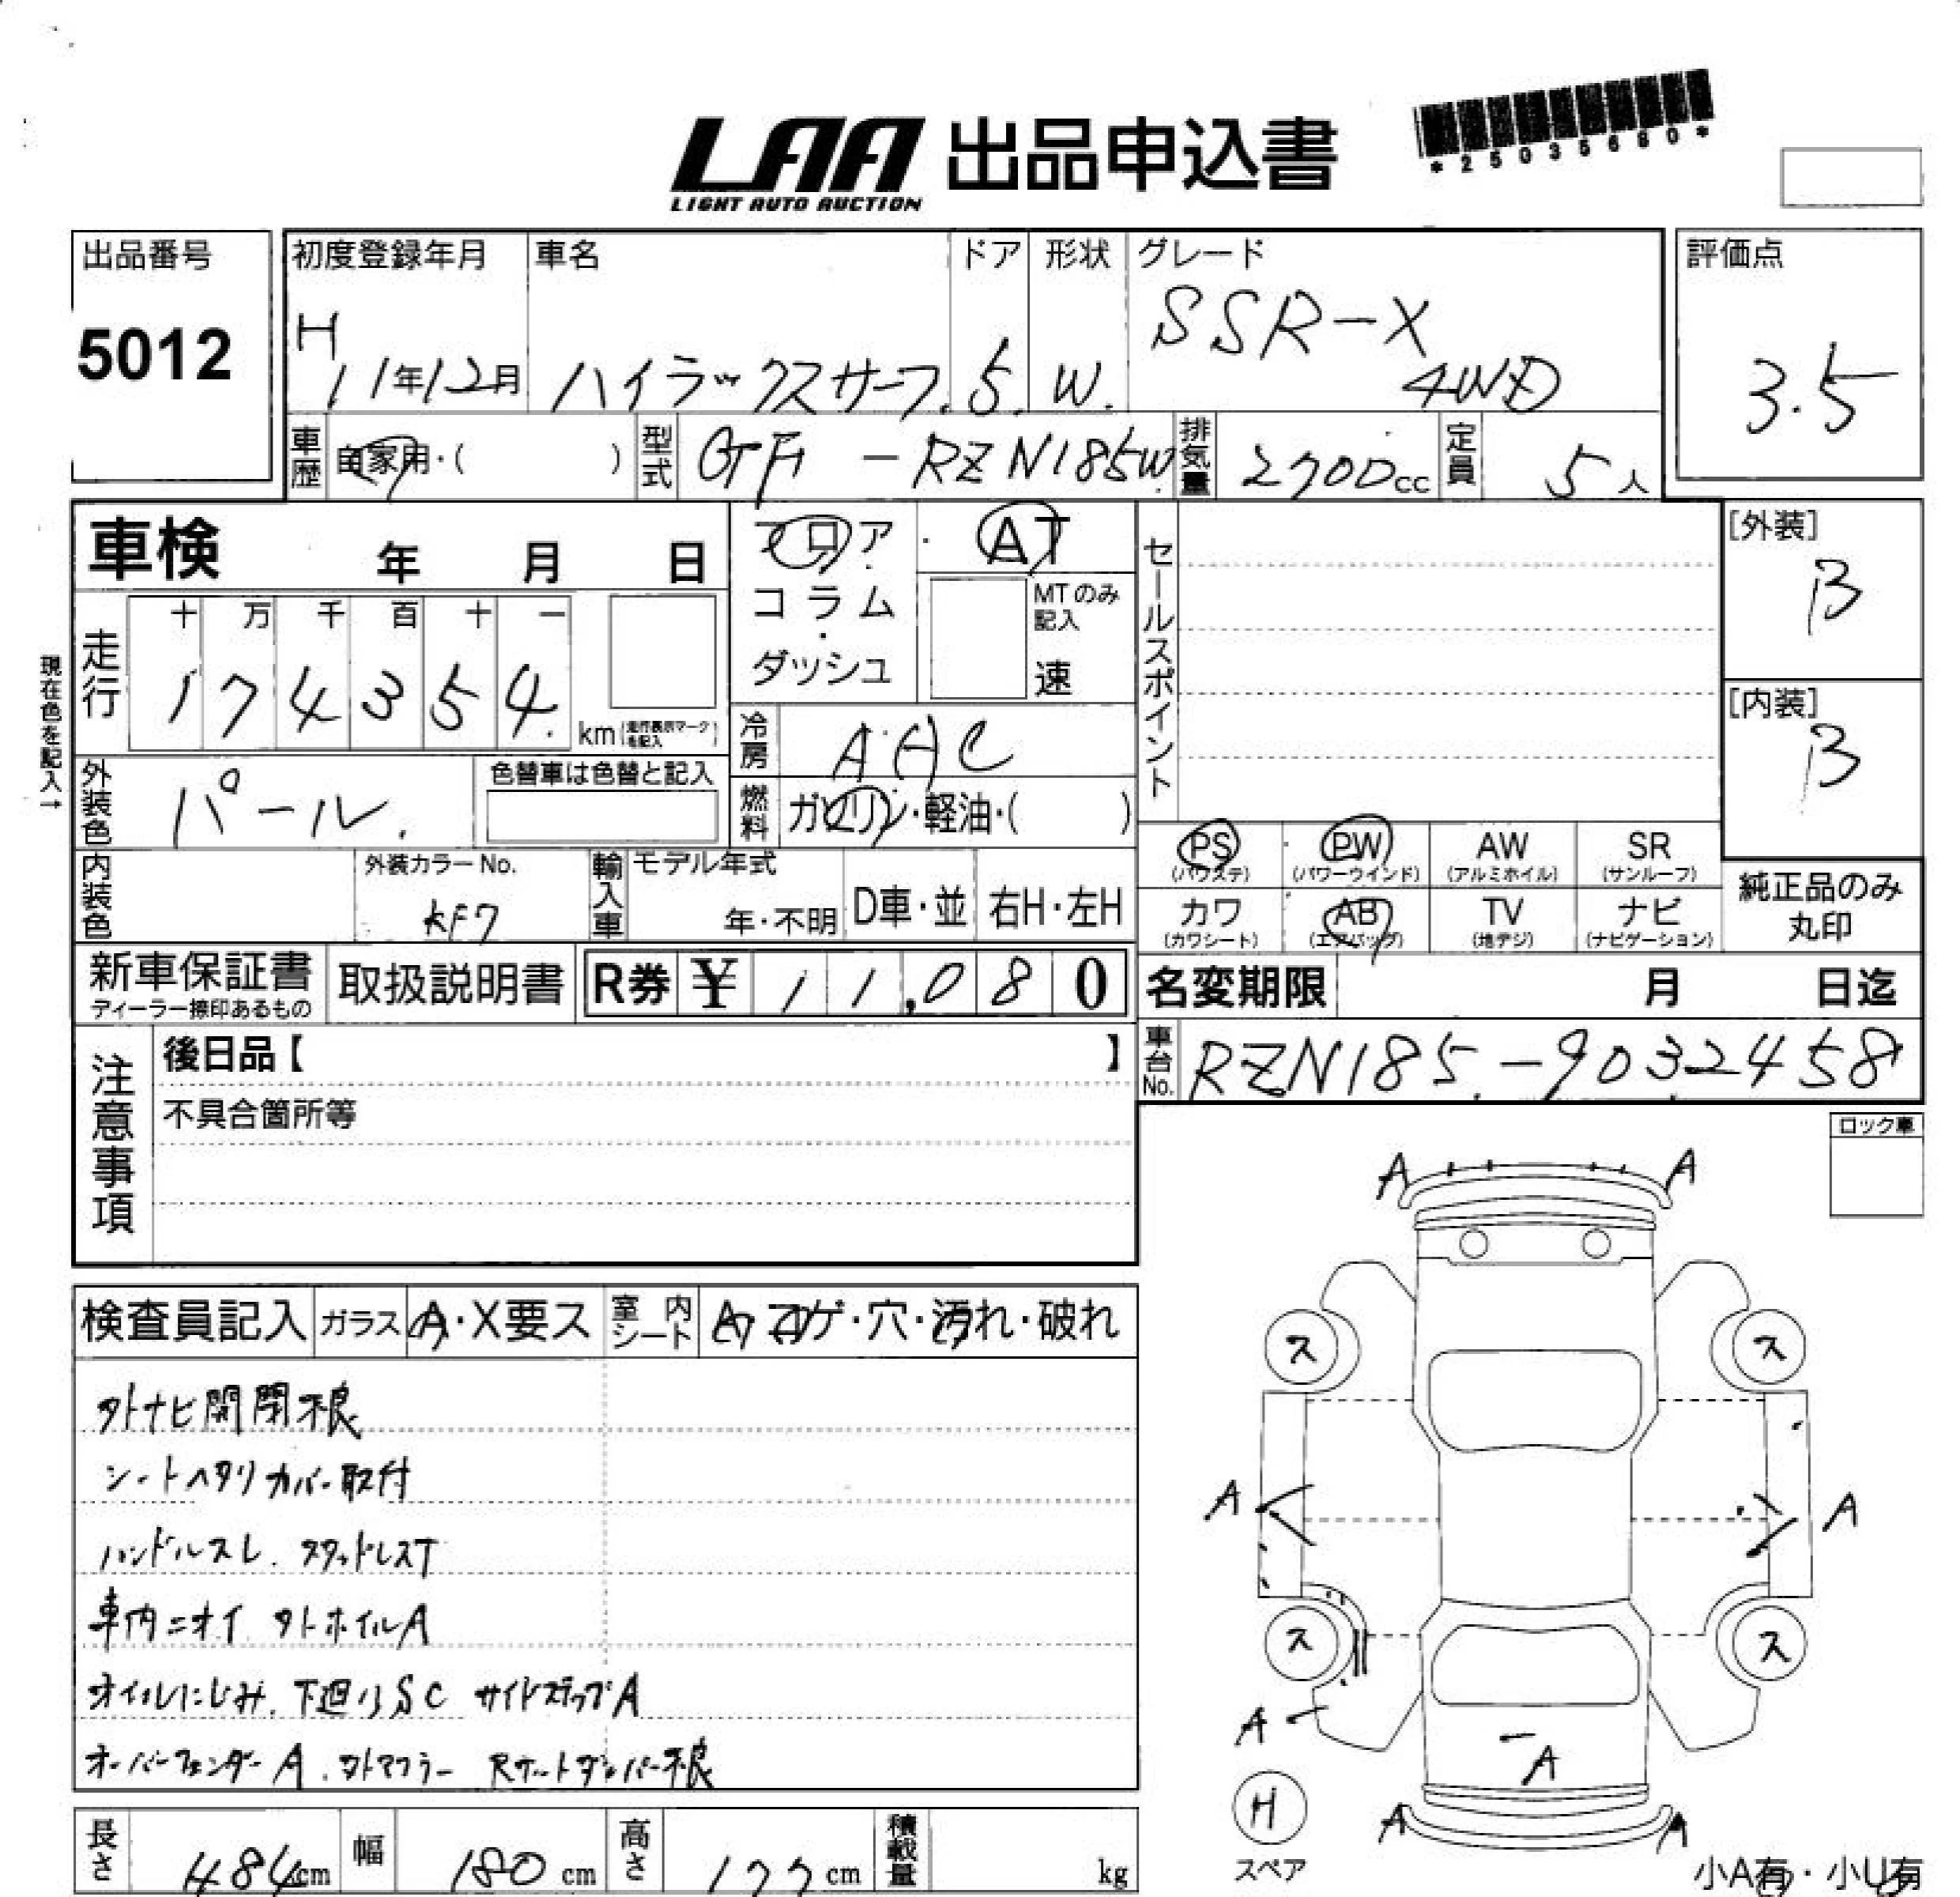 LAA 出品申込書
LIGHT AUTO AUCTION
*25035680*
出品番号
5012
初度登録年月
H
11年12月
車名
ハイラックスサーフ.
ドア
5.
形状
W.
グレード
SSR-X
4WD
評価点
3.5
車歴
自家用・( )
型式
GF - RZN185W.
排気量
2700cc
定員
5人
車検 年 月 日
フロア
コラム
・
ダッシュ
AT
MTのみ
記入
速
セールスポイント
[外装]
B
[内装]
B
現在色を記入→
走行
十 万 千 百 十 一
1 7 4 3 5 4.
km (走行表示マークを記入)
冷房
AAC
外装色
パール.
色替車は色替と記入
燃料
ガソリン・軽油・( )
PS (パワステ)
PW (パワーウインド)
AW (アルミホイル)
SR (サンルーフ)
カワ (カワシート)
AB (エアバッグ)
TV (地デジ)
ナビ (ナビゲーション)
純正品のみ
丸印
内装色
外装カラーNo.
KF7
輸入車
モデル年式
年・不明
D車・並
右H・左H
新車保証書
ディーラー捺印あるもの
取扱説明書
R券 ¥ 11,080
名変期限 月 日迄
車台No.
RZN185.-9032458
注意事項
後日品【 】
不具合箇所等
ロック車
検査員記入
ガラス
A・X要ス
室内シート
コゲ・穴・汚れ・破れ
外ナビ開閉不良
シートヘタリ カバー取付
ハンドルスレ. スタッドレスT
車内ニオイ 外ホイルA
オイルにじみ. 下廻りSC サイドステップA
オーバーフェンダーA. 外マフラー Rゲートダンパー不良
A A
ス ス
A A
ス ス
A
A
H
スペア
A A
小A有・小U有
長さ
484cm
幅
180cm
高さ
177cm
積載量
kg